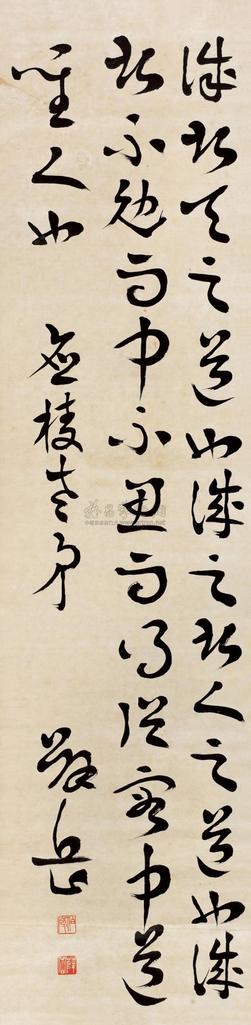 誠者天之道也誠之者人之道也誠
者不勉而中不思而得從容中道
聖人也
棱老弟